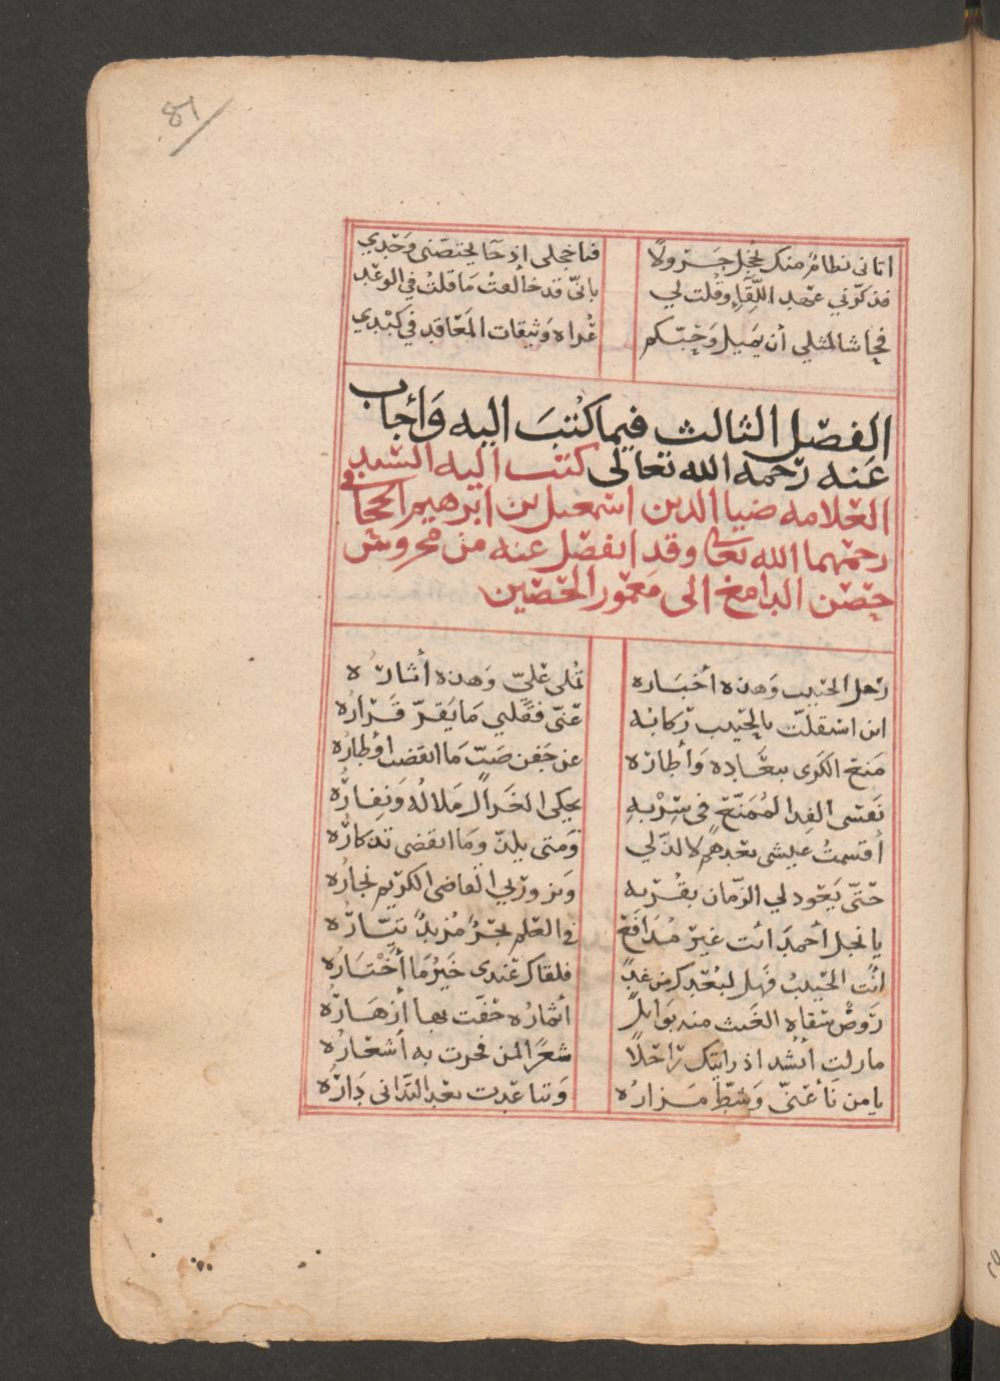 81
اتانى نظام منك يخجل جرولا فيا خجلى إذ جا يختصنى وحدي
فذكرني عهد اللقاء وقلت لي باني قد خالفت ما قلت في الوعد
فحاشا لمثلي أن يميل وحبكم عراه وثيقات المعاقد في كبدي
الفصل الثالث فيما كتب اليه وأجاب
عنه رحمه الله تعالى كتب اليه السيد
العلامه ضيا الدين اسمعيل بن ابرهيم الحجافي
رحمهما الله تعالى وقد انفصل عنه من محروس
حصن الدامغ الى معمور الحصين
رحل الحبيب وهذه أخباره تملى علي وهذه أثاره
اين استقلت بالحبيب ركابه عني فقلبي ما يقر قراره
منع الكرى ببعاده وأطاره عن جفن صب ما انقضت اوطاره
نفسى الفدا لممنع في سربه يحكى الغزال ملاله ونفاره
أقسمت عيشى بعدهم لا لذ لي ومتى يلذ وما انقضى تذكاره
حتى يعود لي الزمان بقربه ويزور بي القاضى الكريم نجاره
يا نجل أحمد أنت غير مدافع في العلم بحر مزبد تياره
أنت الحبيب فهل لبعدك من غد فلقاك عندى خير ما أختاره
روض سقاه الغيث منه بوابل أثماره حفت بها أزهاره
مازلت أنشد اذ رايتك راحلا شعرا لمن فخرت به أشعاره
يا من نأ عني وشط مزاره وتباعدت بعد التدانى داره